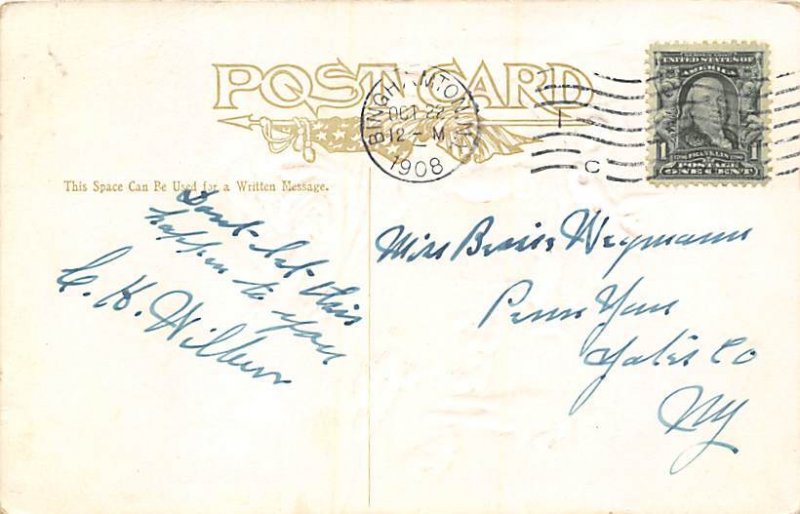 POST CARD
BINGHAMTON N.Y.
OCT 22
12 - M
1908
1
C
UNITED STATES OF
AMERICA
FRANKLIN
POSTAGE
1 ONE CENT 1
This Space Can Be Used for a Written Message.
Dont let this
happen to you
C. K. Wilbur
Miss Bessie Weymann
Penn Yan
Yates Co
NY